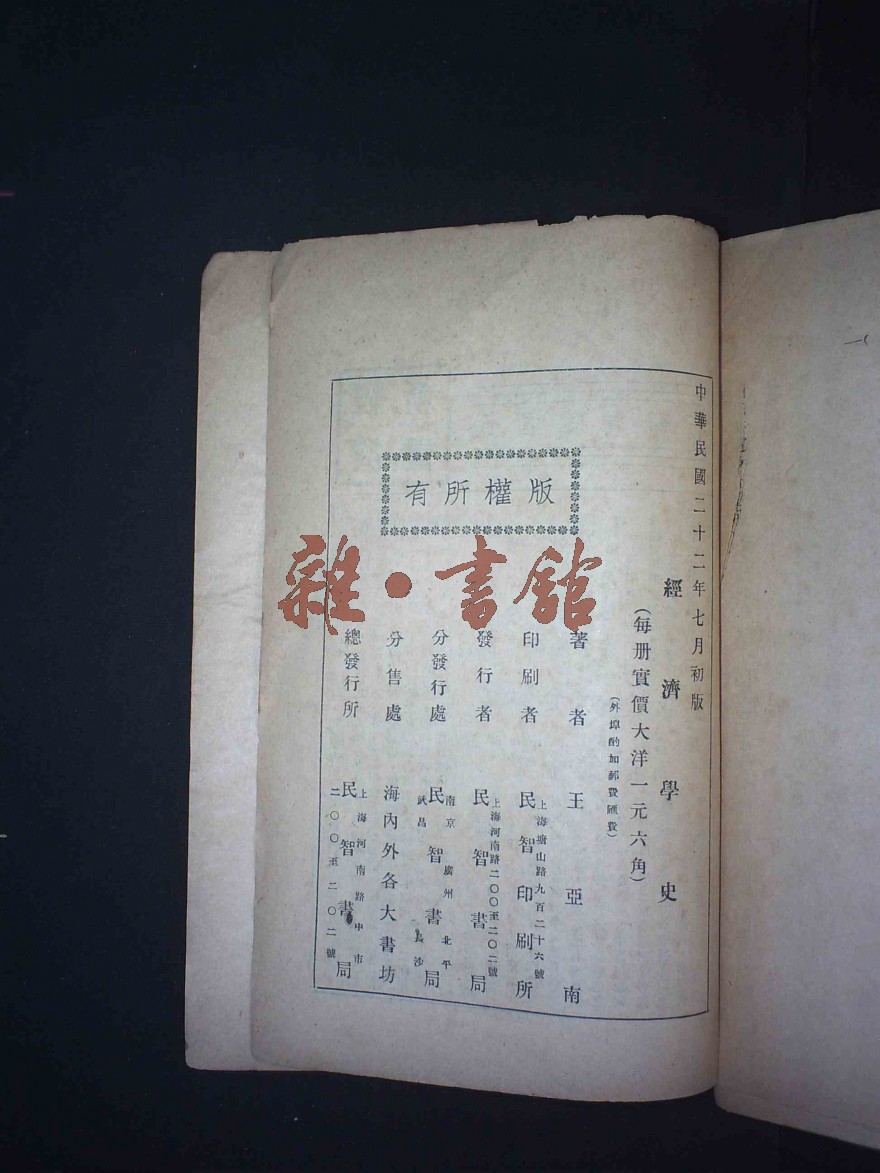 中華民國二十二年七月初版
經濟學史
(每册實價大洋一元六角)
(外埠酌加郵費匯費)
有所權版
著者 王亞南
印刷者
上海塘山路九百二十六號
民智印刷所
發行者
上海河南路二〇〇至二〇二號
民智書局
分發行處
南京 廣州 北平
民智書局
武昌 長沙
分售處 海內外各大書坊
總發行所
上海河南路中市
民智書局
二〇〇至二〇二號
雜·書館